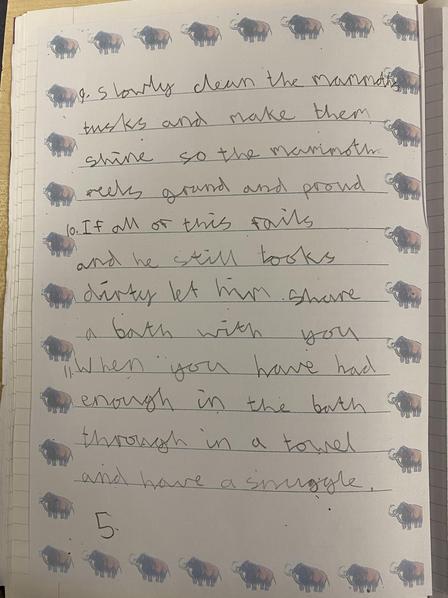 9. slowly clean the mammoths
tusks and make them
shine so the mammoth
reels grand and proud
10. If all or this rails
and he still looks
dirty let him share
a bath with you
11. When you have had
enough in the bath
through in a towel
and have a snuggle.
5